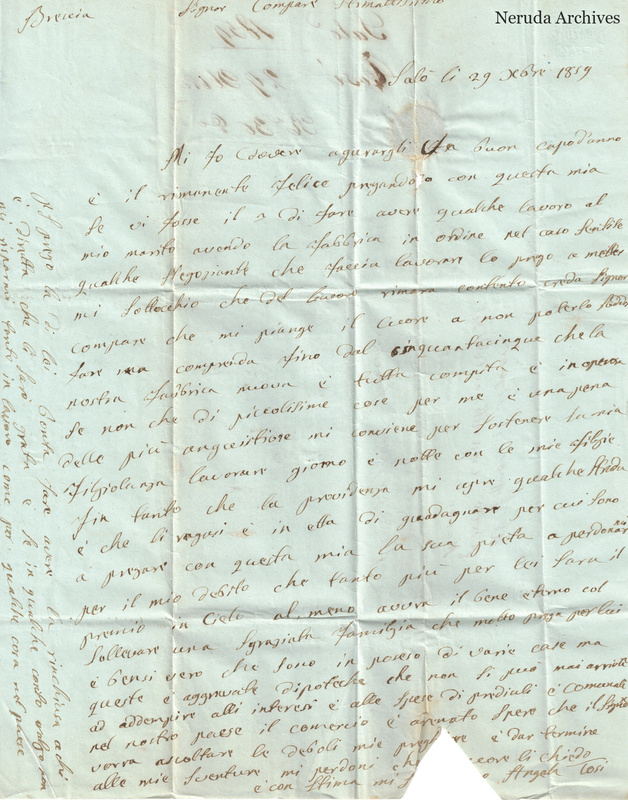 Neruda Archives
Breccia Signor Compare Stimatissimo
Salò li 29 Xbre 1859
Mi fo dovere agurargli Un buon capo d'anno
è il rimanante felice pregandolo con questa mia
se vi fosse il a di fare avere qualche lavoro al
mio marito avendo la fabbrica in ordine nel caso
qualche Negoziante che faccia lavorare lo prego a metter
mi sottocchio che del lavoro rimara contento creda Signor
compare che mi piange il cuore a non poterlo
fare ma comprenda fino dal cinquantacinque che la
nostra fabbrica nuova è tutta compita è in opera
se non che di piccolisime cose per me è una pena
delle più anguistiose mi conviene per sostenere la mia
figliolanza lavorare giorno è notte con le mie figlie
fin tanto che la providenza mi apre qualche strada
è che li ragasi è in ella di guadagnare per cui sono
a pregare con questa mia la sua pieta a perdonarmi
per il mio debito che tanto più per lei sara il
premio in Cielo al meno avvra il bene eterno col
sollevare una sgraziata famiglia che molto prega per lui
è bensi vero che sono in poseso di varie case ma
queste è aggravate dipoteche che non si può mai arrivare
ad addenpire alli interesi è alle spese di prediali è comunali
nel nostro paese il comercio è spero che il Signore
vorra ascoltare le deboli mie è dar termine
alle mie sventure mi perdoni li chiedo
è con stima mi Angela Cosi
PS prego la di lei bontà fare avere la rinchiusa a chi
è diretta che li sarò grata è se in qualche conto
mi risparmi tanto in lavoro come per qualche cosa nel paese